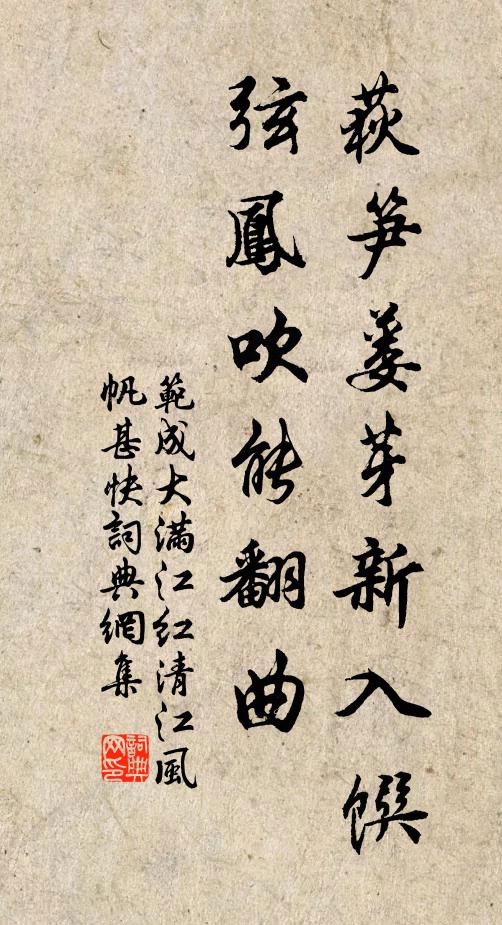 荻笋蒌芽新入馔
弦鳳吹能翻曲
範成大满江红清江風
帆甚快詞典網集
詞典网印